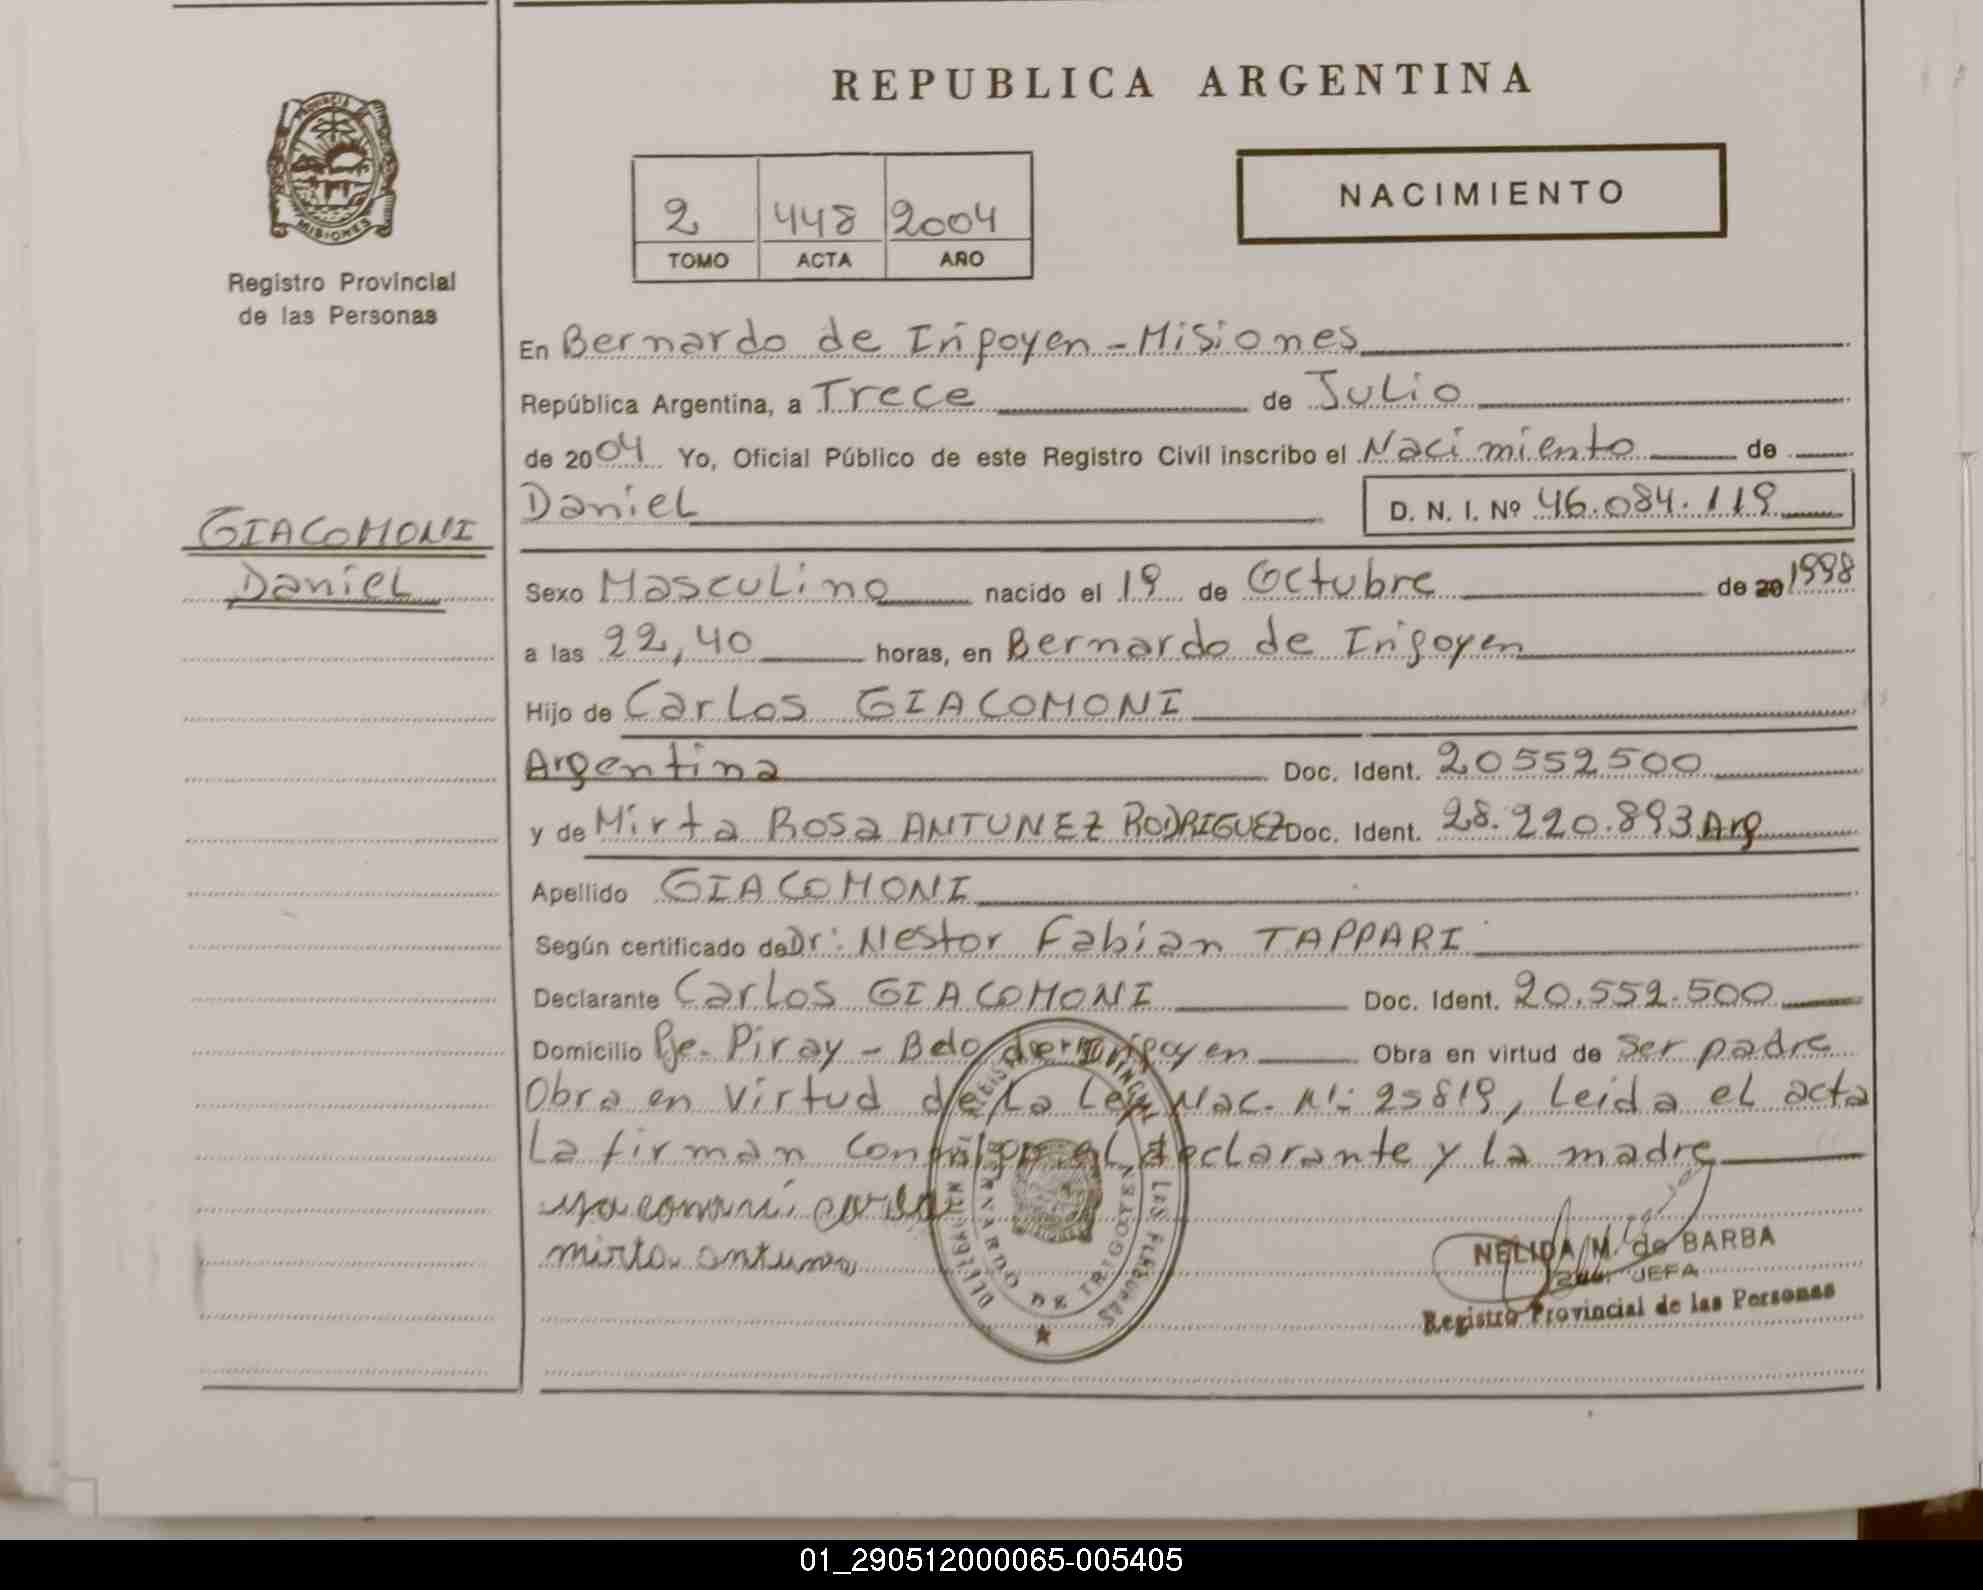 REPUBLICA ARGENTINA
PROVINCIA
MISIONES
Registro Provincial
de las Personas
2 448 2004
TOMO ACTA AÑO
NACIMIENTO
En Bernardo de Irigoyen - Misiones
República Argentina, a Trece de Julio
de 2004 Yo, Oficial Público de este Registro Civil inscribo el Nacimiento de
Daniel D. N. I. Nº 46.084.119
GIACOMONI
Daniel
Sexo Masculino nacido el 19 de Octubre de 20 1998
a las 22,40 horas, en Bernardo de Irigoyen
Hijo de Carlos GIACOMONI
Argentina Doc. Ident. 20552500
y de Mirta Rosa ANTUNEZ RODRIGUEZ Doc. Ident. 28.220.893 Arg
Apellido GIACOMONI
Según certificado de Dr: Nestor Fabian TAPPARI
Declarante Carlos GIACOMONI Doc. Ident. 20.552.500
Domicilio Pje. Piray - Bdo de Irigoyen Obra en virtud de ser padre
Obra en virtud de la Ley Nac. Nº: 25819, Leida el acta
La firman conmigo el declarante y la madre
mirta antunes
NELIDA M. de BARBA
JEFA
Registro Provincial de las Personas
BERNARDO DE IRIGOYEN
01_290512000065-005405